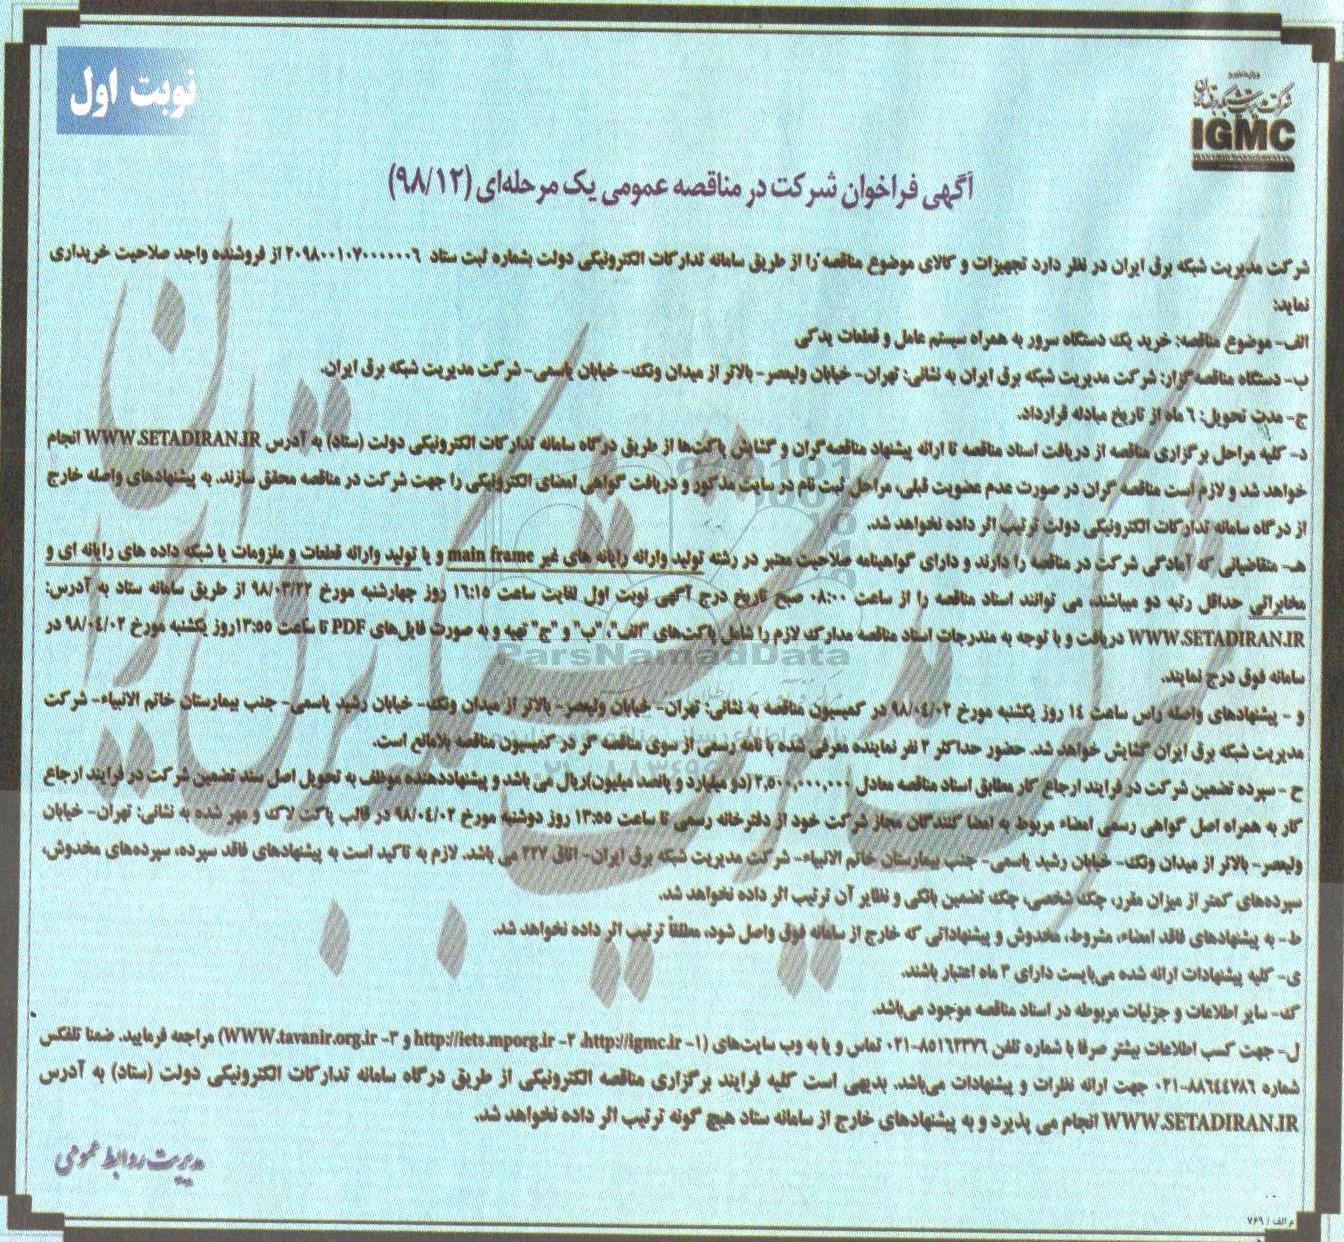 نوبت اول
شرکت مدیریت شبکه برق ایران
IGMC
آگهی فراخوان شرکت در مناقصه عمومی یک مرحله‌ای (۹۸/۱۲)
شرکت مدیریت شبکه برق ایران در نظر دارد تجهیزات و کالای موضوع مناقصه را از طریق سامانه تدارکات الکترونیکی دولت بشماره ثبت ستاد ۲۰۹۸۰۰۱۰۷۰۰۰۰۰۰۶ از فروشنده واجد صلاحیت خریداری
نماید:
الف- موضوع مناقصه: خرید یک دستگاه سرور به همراه سیستم عامل و قطعات یدکی
ب- دستگاه مناقصه‌گزار: شرکت مدیریت شبکه برق ایران به نشانی: تهران- خیابان ولیعصر- بالاتر از میدان ونک- خیابان یاسمی- شرکت مدیریت شبکه برق ایران.
ج- مدت تحویل: ۶ ماه از تاریخ مبادله قرارداد.
د- کلیه مراحل برگزاری مناقصه از دریافت اسناد مناقصه تا ارائه پیشنهاد مناقصه‌گران و گشایش پاکت‌ها از طریق درگاه سامانه تدارکات الکترونیکی دولت (ستاد) به آدرس WWW.SETADIRAN.IR انجام
خواهد شد و لازم است مناقصه گران در صورت عدم عضویت قبلی، مراحل ثبت نام در سایت مذکور و دریافت گواهی امضای الکترونیکی را جهت شرکت در مناقصه محقق سازند. به پیشنهادهای واصله خارج
از درگاه سامانه تدارکات الکترونیکی دولت ترتیب اثر داده نخواهد شد.
هـ- متقاضیانی که آمادگی شرکت در مناقصه را دارند و دارای گواهینامه صلاحیت معتبر در رشته تولید وارائه رایانه های غیر main frame و یا تولید وارائه قطعات و ملزومات یا شبکه داده های رایانه ای و
مخابراتی حداقل رتبه دو میباشند، می توانند اسناد مناقصه را از ساعت ۰۸:۰۰ صبح تاریخ درج آگهی نوبت اول لغایت ساعت ۱۶:۱۵ روز چهارشنبه مورخ ۹۸/۰۳/۲۲ از طریق سامانه ستاد به آدرس:
WWW.SETADIRAN.IR دریافت و با توجه به مندرجات اسناد مناقصه مدارک لازم را شامل پاکت‌های "الف"، "ب" و "ج" تهیه و به صورت فایل‌های PDF تا ساعت ۱۳:۵۵ روز یکشنبه مورخ ۹۸/۰۴/۰۲ در
سامانه فوق درج نمایند.
و - پیشنهادهای واصله راس ساعت ۱۴ روز یکشنبه مورخ ۹۸/۰۴/۰۲ در کمیسیون مناقصه به نشانی: تهران- خیابان ولیعصر- بالاتر از میدان ونک- خیابان رشید یاسمی- جنب بیمارستان خاتم الانبیاء- شرکت
مدیریت شبکه برق ایران گشایش خواهد شد. حضور حداکثر ۲ نفر نماینده معرفی شده با نامه رسمی از سوی مناقصه گر در کمیسیون مناقصه بلامانع است.
ح - سپرده تضمین شرکت در فرایند ارجاع کار مطابق اسناد مناقصه معادل ۲,۵۰۰,۰۰۰,۰۰۰ (دو میلیارد و پانصد میلیون)ریال می باشد و پیشنهاددهنده موظف به تحویل اصل سند تضمین شرکت در فرایند ارجاع
کار به همراه اصل گواهی رسمی امضاء مربوط به امضا کنندگان مجاز شرکت خود از دفترخانه رسمی تا ساعت ۱۳:۵۵ روز دوشنبه مورخ ۹۸/۰۴/۰۲ در قالب پاکت لاک و مهر شده به نشانی: تهران- خیابان
ولیعصر- بالاتر از میدان ونک- خیابان رشید یاسمی- جنب بیمارستان خاتم الانبیاء- شرکت مدیریت شبکه برق ایران- اتاق ۲۲۷ می باشد. لازم به تاکید است به پیشنهادهای فاقد سپرده، سپرده‌های مخدوش،
سپرده‌های کمتر از میزان مقرر، چک شخصی، چک تضمین بانکی و نظایر آن ترتیب اثر داده نخواهد شد.
ط- به پیشنهادهای فاقد امضاء، مشروط، مخدوش و پیشنهاداتی که خارج از سامانه فوق واصل شود، مطلقاً ترتیب اثر داده نخواهد شد.
ی- کلیه پیشنهادات ارائه شده می‌بایست دارای ۳ ماه اعتبار باشند.
ک- سایر اطلاعات و جزئیات مربوطه در اسناد مناقصه موجود می‌باشد.
ل- جهت کسب اطلاعات بیشتر صرفا با شماره تلفن ۸۵۱۶۲۳۷۶-۰۲۱ تماس و یا به وب سایت‌های (۱- http://igmc.ir، ۲- http://iets.mporg.ir و ۳- WWW.tavanir.org.ir) مراجعه فرمایید. ضمنا تلفکس
شماره ۸۸۶۴۴۷۸۶-۰۲۱ جهت ارائه نظرات و پیشنهادات می‌باشد. بدیهی است کلیه فرایند برگزاری مناقصه الکترونیکی از طریق درگاه سامانه تدارکات الکترونیکی دولت (ستاد) به آدرس
WWW.SETADIRAN.IR انجام می پذیرد و به پیشنهادهای خارج از سامانه ستاد هیچ گونه ترتیب اثر داده نخواهد شد.
مدیریت روابط عمومی
م الف / ۷۶۹
ParsNamadData